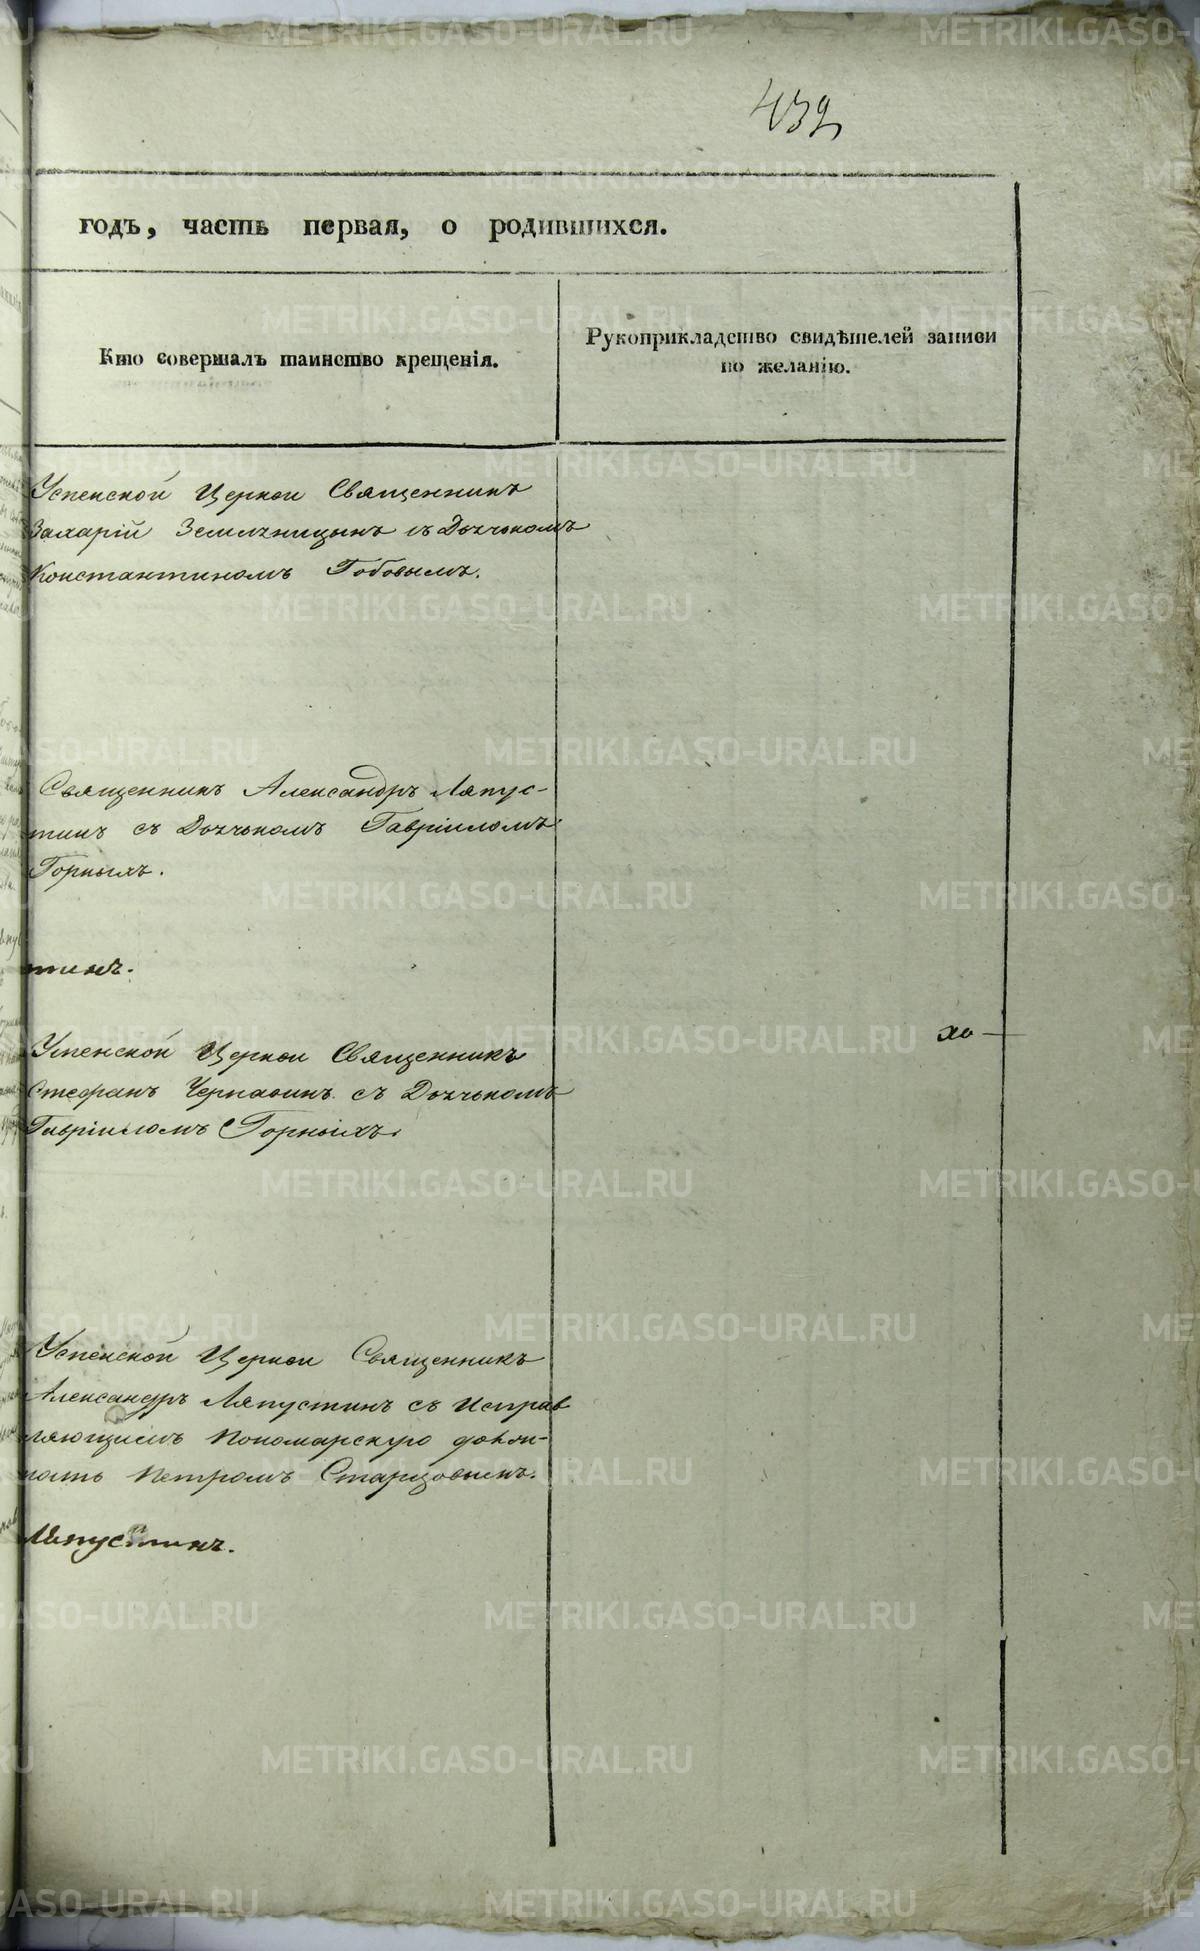 432
годъ, часть первая, о родившихся.
Кто совершалъ таинство крещенія.
Рукоприкладство свидѣтелей записи
по желанію.
Успенской Церкви Священникъ
Захарій Землѧницынъ съ Дьячькомъ
Константиномъ Гобовымъ.
Священникъ Александръ Ляпус-
тинъ съ Дьячькомъ Гавріиломъ
Горныхъ.
тинъ.
хо
Успенской Церкви Священникъ
Стефанъ Чернавинъ съ Дьячькомъ
Гавріиломъ Горныхъ.
Успенской Церкви Священникъ
Александръ Ляпустинъ съ исправ
ляющимъ Пономарскую долж-
ность Петромъ Старцовымъ.
Ляпустинъ.
METRIKI.GASO-URAL.RU